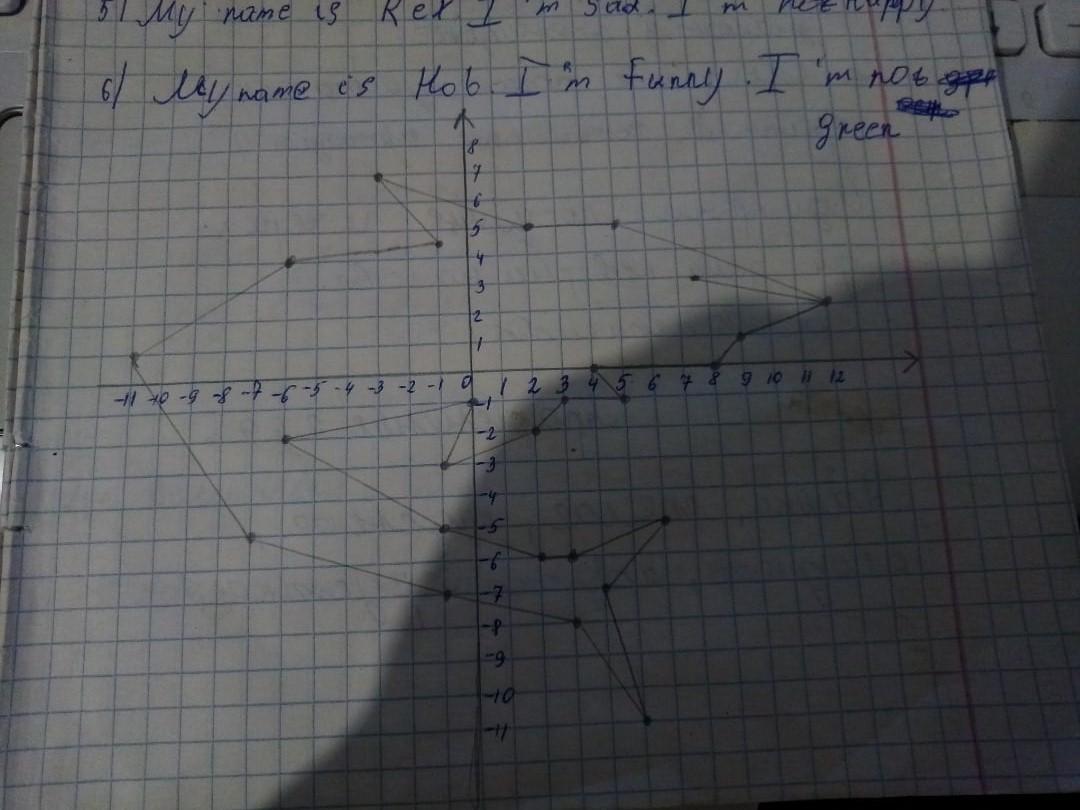 5) My name is Rex I'm sad. I'm not happy
6) My name is Hob. I'm Funny. I'm not
green
8
7
6
5
4
3
2
1
-11 -10 -9 -8 -7 -6 -5 -4 -3 -2 -1 0 1 2 3 4 5 6 7 8 9 10 11 12
-1
-2
-3
-4
-5
-6
-7
-8
-9
-10
-11